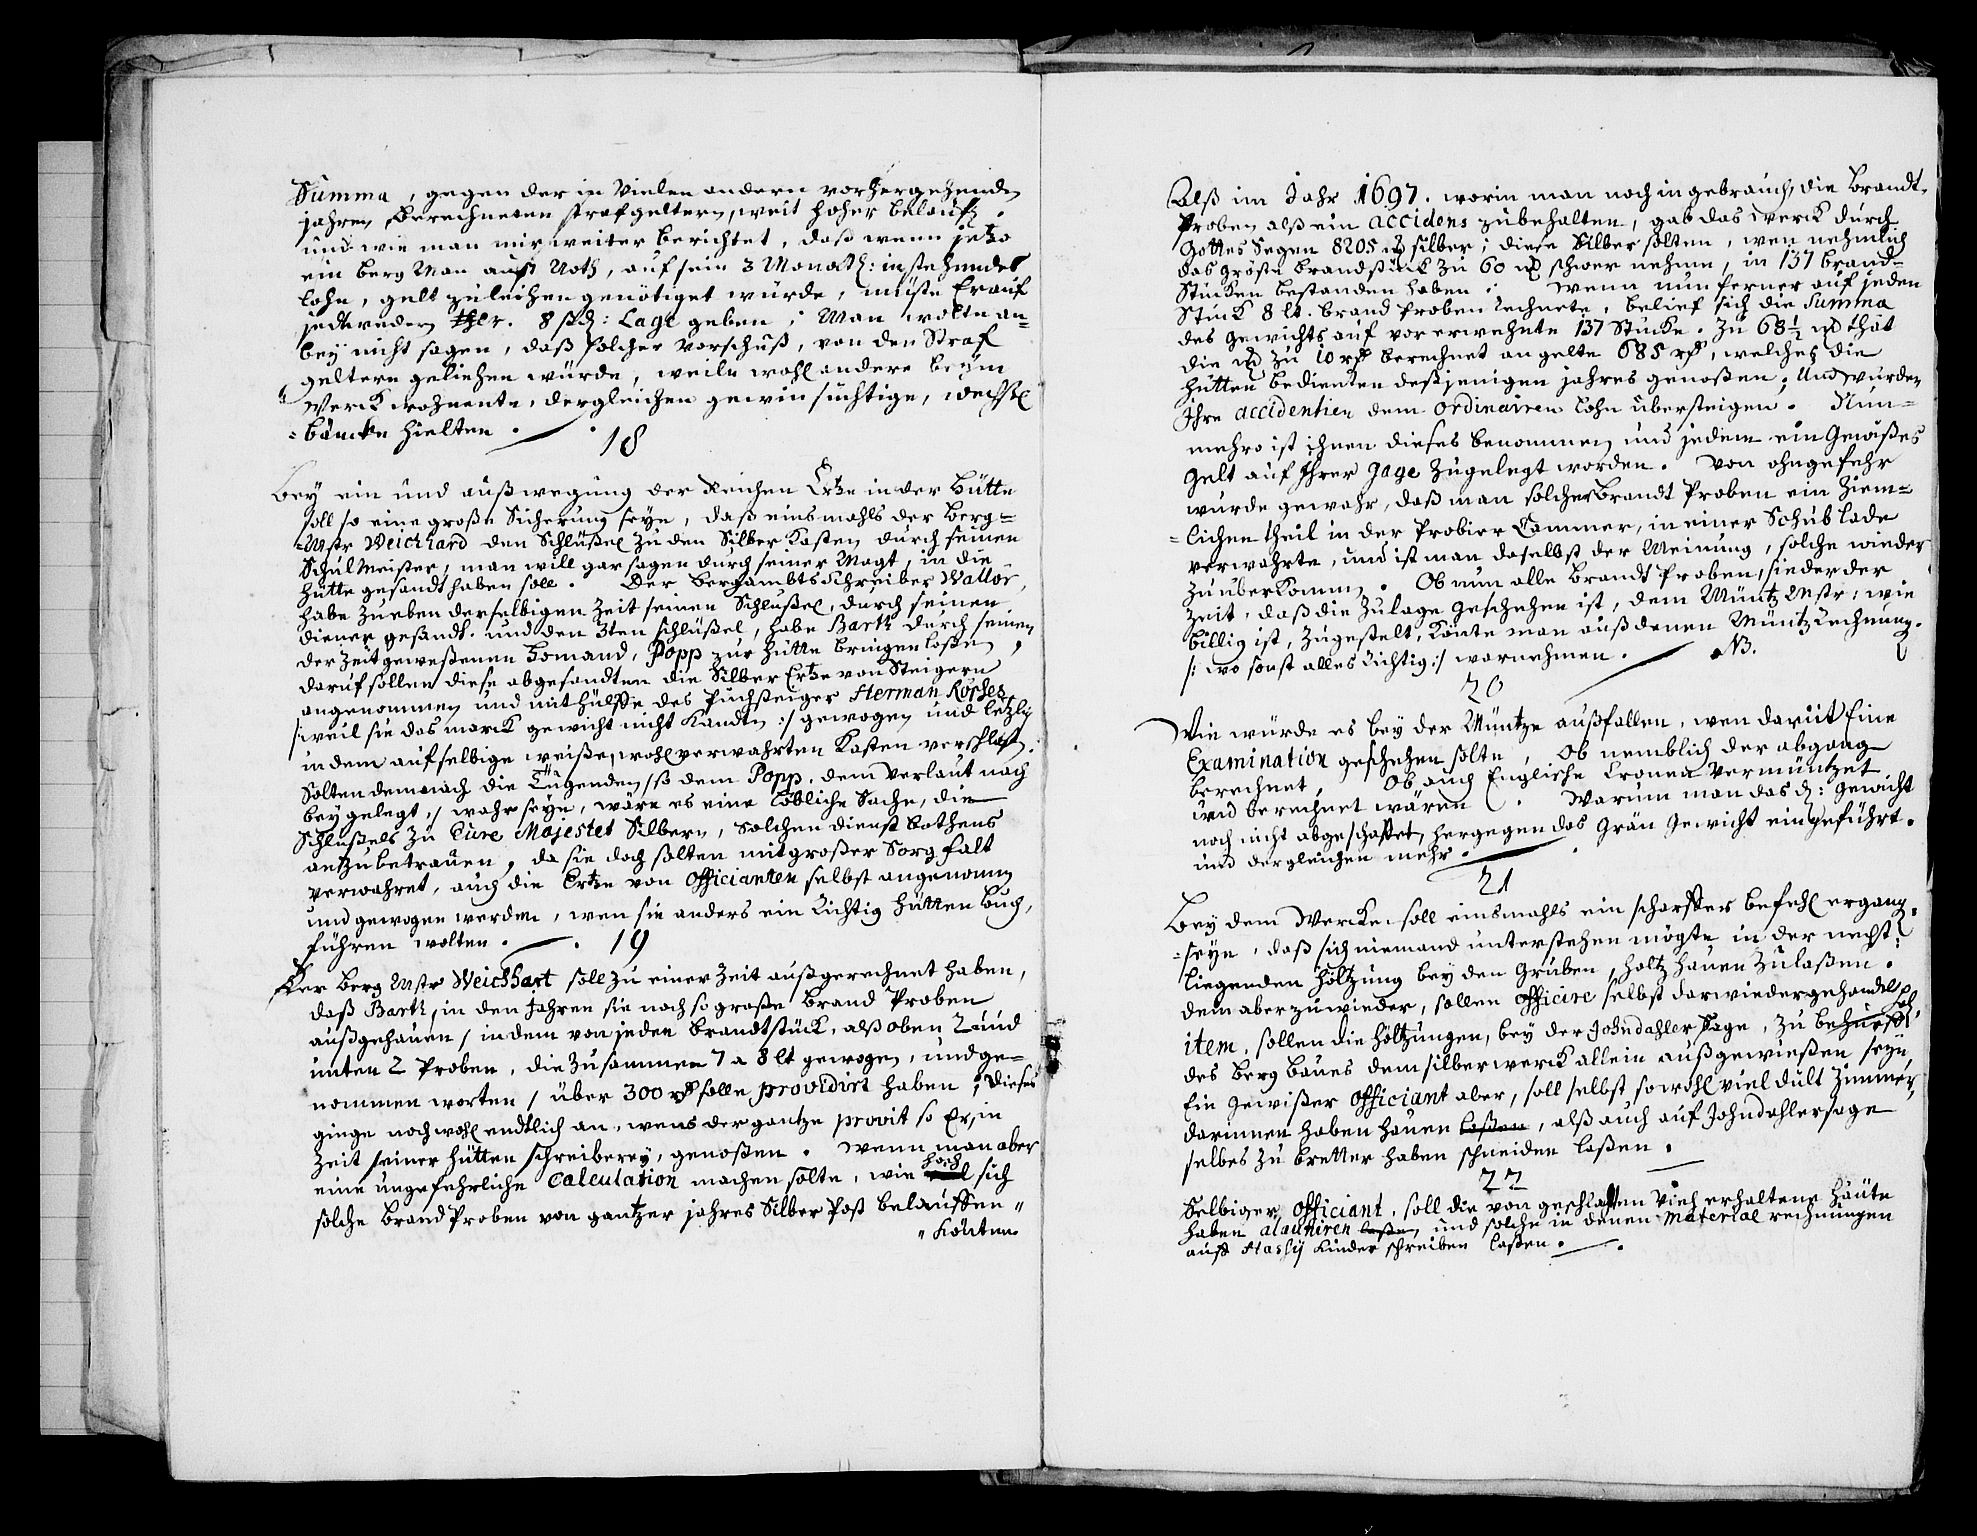 Summa, gegen der in Vielen andern vorhergehenden
jahren berechneten strafgeltern, weit höher belaufe.
und wie man mir weiter berichtet, daß wenn jetzo
ein berg Man auß Noth, auf sein 3 Monath: instehendes
lohn, gelt zu leihen genötiget würde, müste Er auf
jedtweden 8 ß: Lage geben; Man wolte an=
bey nicht sagen, daß solcher Vorschuß, von den Straf
geltern geliehen würde, weiln wohl andere beÿm
Werck wohnente, dergleichen gewinsüchtige, wechsel
=bäncke hielten.
18
Beÿ ein und außwegung der Reichen Ertze in der Hütte
soll so eine große Sicherung seÿn, daß einsmahls der Berg=
=Mstr Weichard den Schlüßel zu den Silber Kasten durch seinen
Schul Meister, man will gar sagen durch seiner Magt, in die
Hütte gesandt haben soll. Der bergambts Schreiber Wallor,
habe zu eben derselbigen Zeit seinen Schlüßel, durch seinen
diener gesandt. und den 3ten schlüßel, habe Barth durch seinen
der Zeit geweßenen Popp zur Hütte bringen laßen,
daruf sollen diese abgesandten die Silber Ertze von Steigern
angenommen und mit hülffe des Puchsteiger Herman Körsses
/: weil sie das marck gewicht nicht Kandten :/ gewogen und letzlich
in dem auf selbige weiße, wohl verwahrten Kasten verschlaßen.
Solten demnach die Tugenden /so dem Popp, dem Verlaut nach
beÿgelegt :/ wahr seÿn, wäre es eine löbliche Sache, die
Schlüßels zu Eure Majestet Silbern, solchen dienst Bothens
antzubetrauen, da sie doch solten mit großer Sorgfalt
verwahret, auch die Ertze von Officianten selbst angenomm
und gewogen werden, wen sie anders ein Richtig Hütten buch,
führen wolten.
19
Der Berg Mstr Weichhart soll zu einer Zeit außgerechnet haben,
daß Barth, in den Jahren sie noch so große Brand Proben
außgehauen / in dem von jeden brandtstück, alß oben 2 und
unten 2 Proben, die zusammen 7 a 8 lt gewogen, und ge=
nommen worten / über 300 rß solle providirt haben; Dieses
ginge noch wohl endtlich an, wens der gantze provit so Er, in
Zeit seiner Hütten schreibereÿ, genoßen. Wenn man aber
eine ungefehrliche Calculation machen solte, wie hoch sich
solche Brand Proben von gantzer jahres Silber Post belauffen
" Könten.
Alß im Jahr 1697. worin man noch in gebrauch, die Brandt=
Proben alß ein accidens zubehalten, gab das Werck durch
Gottes Segen 8205 silber; diese Silber solten, wen nehmlich
das größte brandstück zu 60 schwer nehme, in 137 brand=
Stücken bestanden haben; Wenn nun ferner auf jeden
Stück 8 lt. brand Proben rechnete, belief sich die Summa
des Gewichts auf vor erwehnte 137 Stücke. Zu 68½ thät
die zu 10 rß berechnet an gelte 685 rß, welches die
Hütten bedienten deßjenigen jahres genoßen; Und wurden
Ihre accidentien dem ordinairen lohn übersteigen. Nun=
mehro ist ihnen dieses benommen und jedem ein Gewißes
Gelt auf Ihrer Gage Zugelegt worden. Von ohngefehr
wurde gewahr, daß man solcher Brandt Proben ein Ziem=
=lichen theil in der Probier Cammer, in einer Schub lade
verwahrte, und ist man daselbst der Meinung, solche wieder
zu überkommen. Ob nun alle Brandt Proben, sieder der
Zeit, daß die Zulage geschehen ist, dem Müntz Mstr: wie
billig ist, Zugestelt, Könte man auß denen Müntz Rechnung.
/: wo sonst alles Richtig :/ vornehmen. NB.
20
Wie würde es beÿ der Müntze außfallen, wen damit Eine
Examination geschehen solte, Ob nemblich der abgang
berechnet, Ob auch Englische Cronen vermüntzet
und berechnet wären. Warum man das d: gewicht
noch nicht abgeschaffet, hergegen das Grän Gewicht eingeführt.
und dergleichen mehr.
21
Beÿ dem Wercke soll einsmahls ein scharffer befehl ergang=
=seÿn, daß sich niemand unterstehen mögte in der nechst
liegenden Höltzung beÿ den Gruben, holtz hauen Zulaßen.
dem aber zuwieder, sollen officire selbst darwieder gehandelt hab,
item, sollen die höltzungen, beÿ der Johndahler Sage, Zu behuef
des berg baues dem silberwerck allein außgewießen seÿn
Ein Gewißer Officiant aber, soll selbst, sowohl viel Zimmer
darinnen haben hauen laßen, alß auch auf Johndahlersage
selbes zu bretter haben schneiden laßen.
22
Selbiger Officiant, soll die von geschlachten Vieh erhaltene Häüte
haben alauniren laßen, und solche in denen Material rechnungen
auff Kinder schreiben laßen.